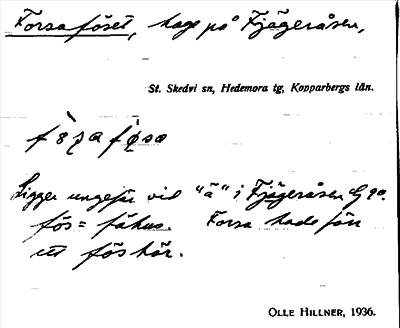 Forsa föset, hage på Fjägeråsen,
St. Skedvi sn, Hedemora tg, Kopparbergs län.
Ligger ungefär vid "ä" i Fjägeråsen
fös = fähus. Forsa hade förr
ett fös här.
OLLE HILLNER, 1936.